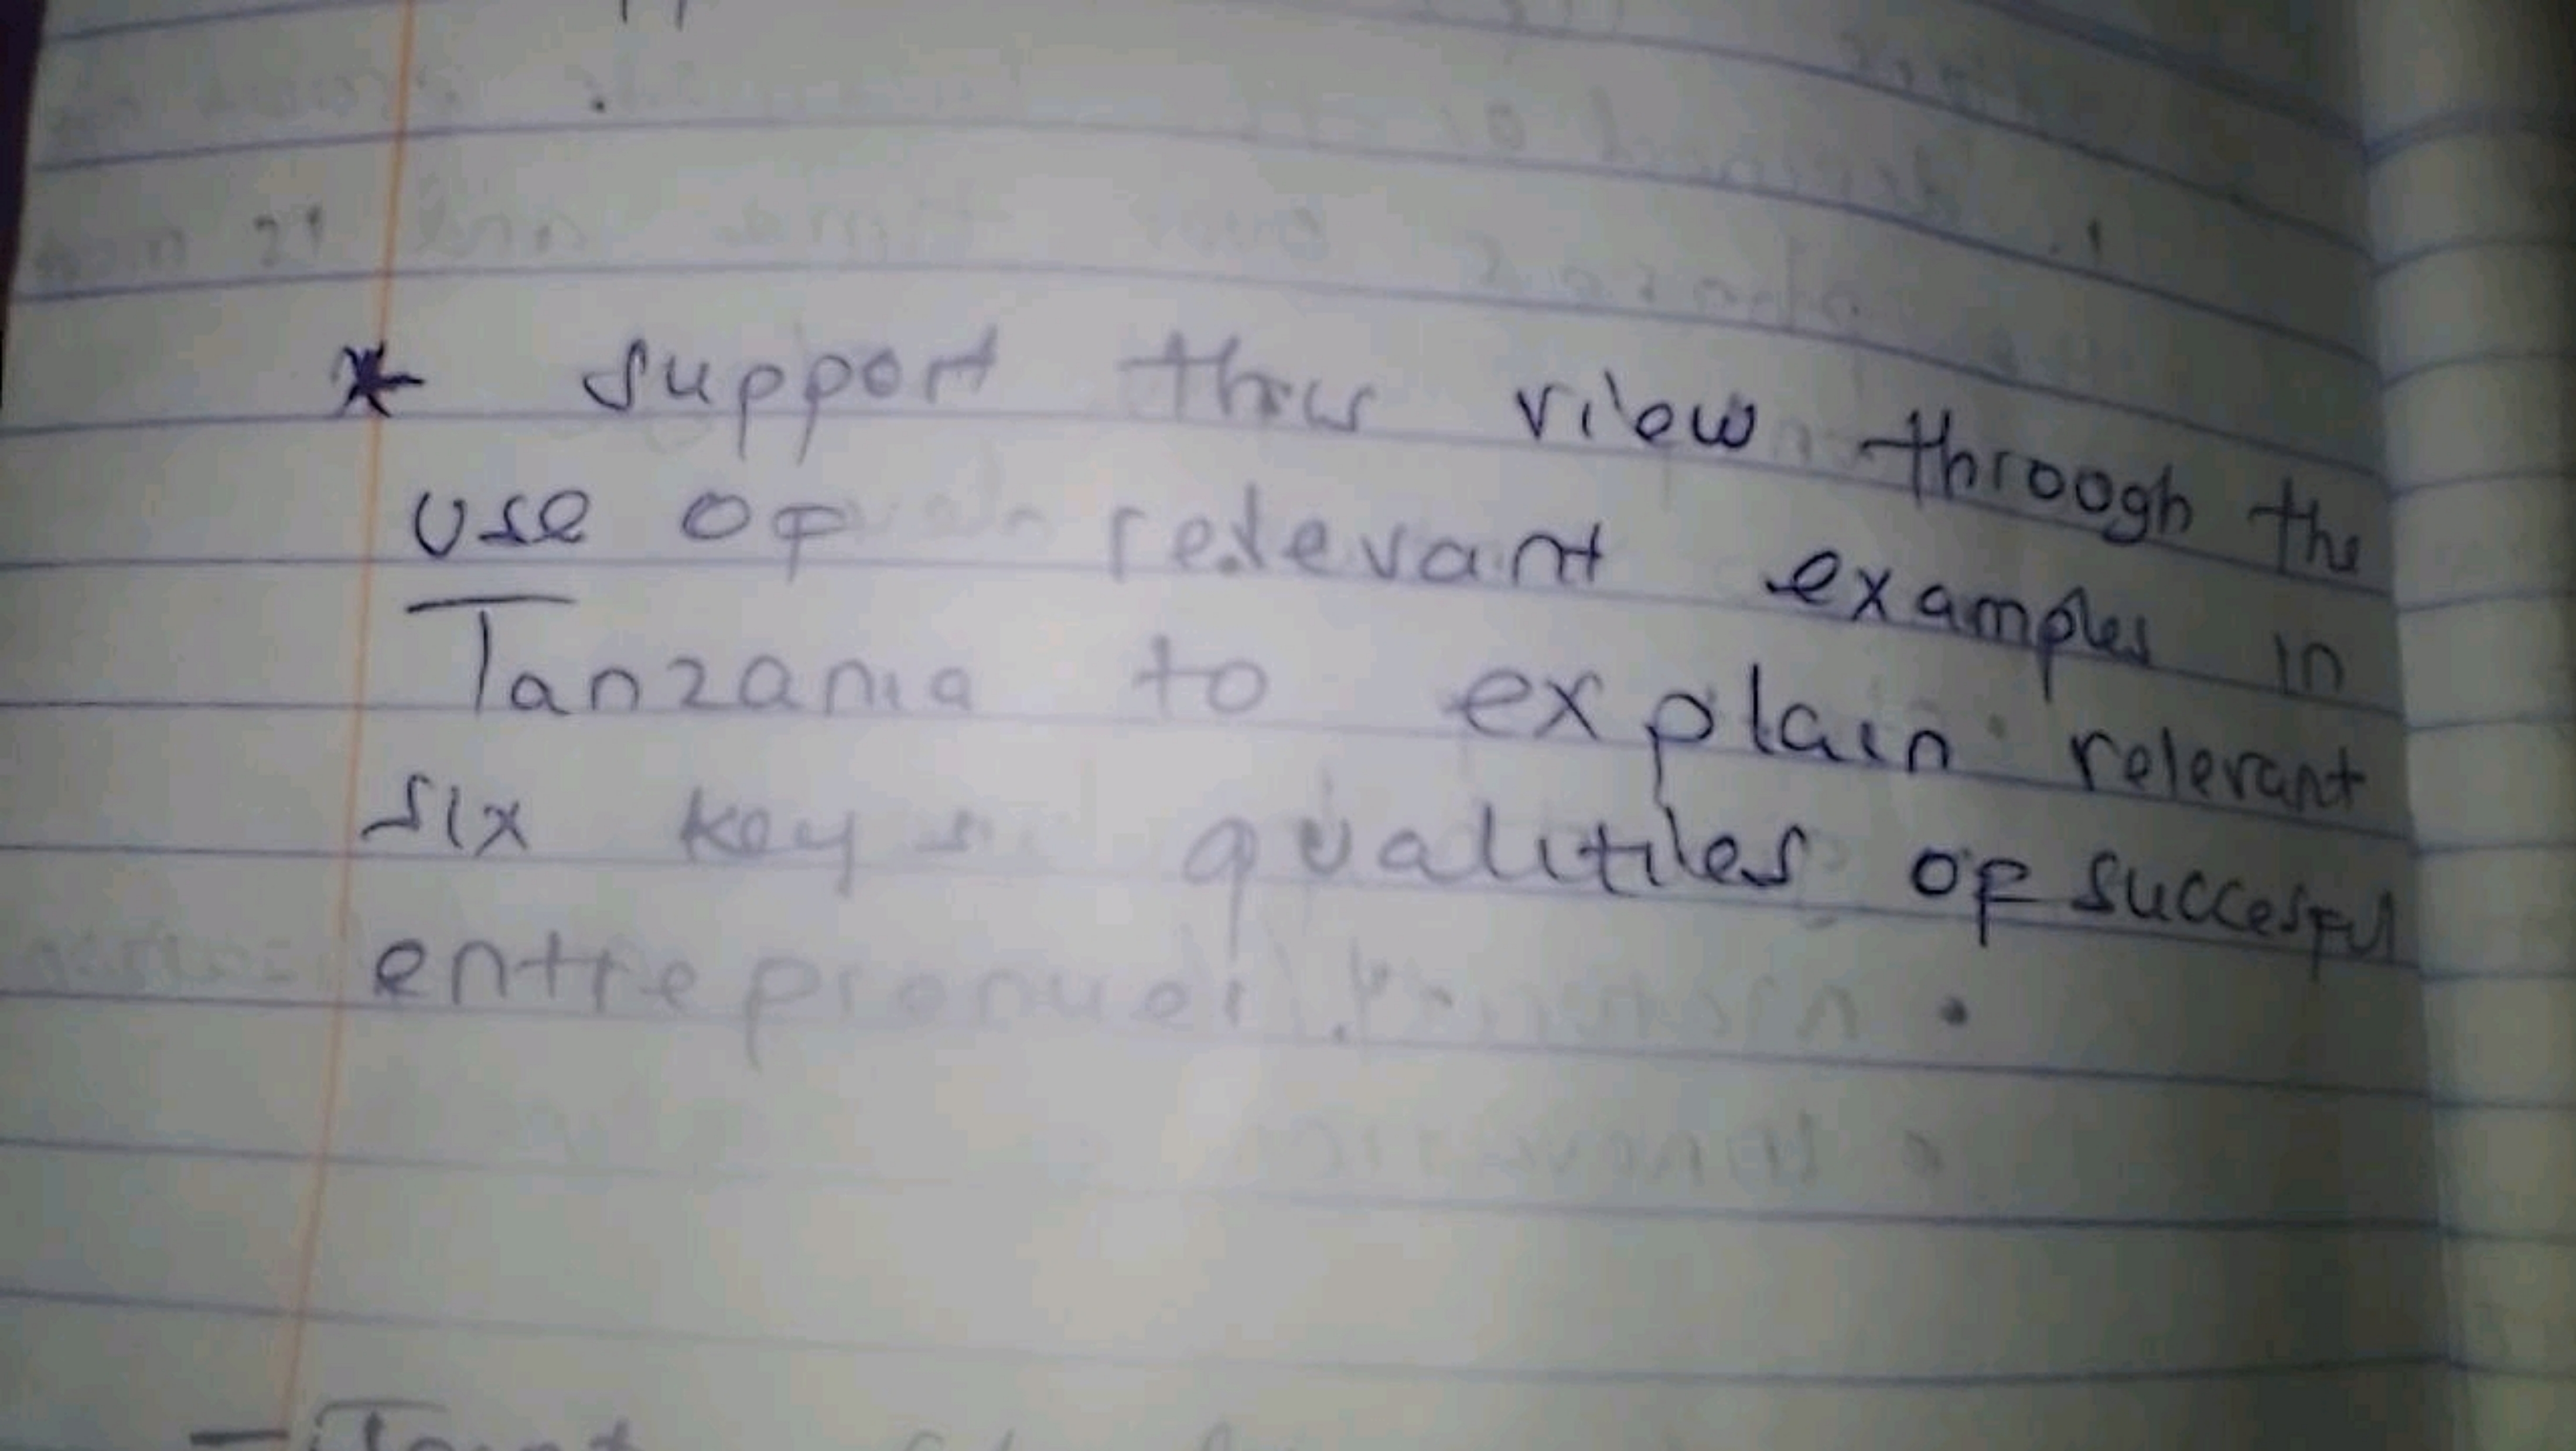 * support this view through the
use of relevant examples in
Tanzania to explain relevant
six key qualities of succesful
entreprenuer.